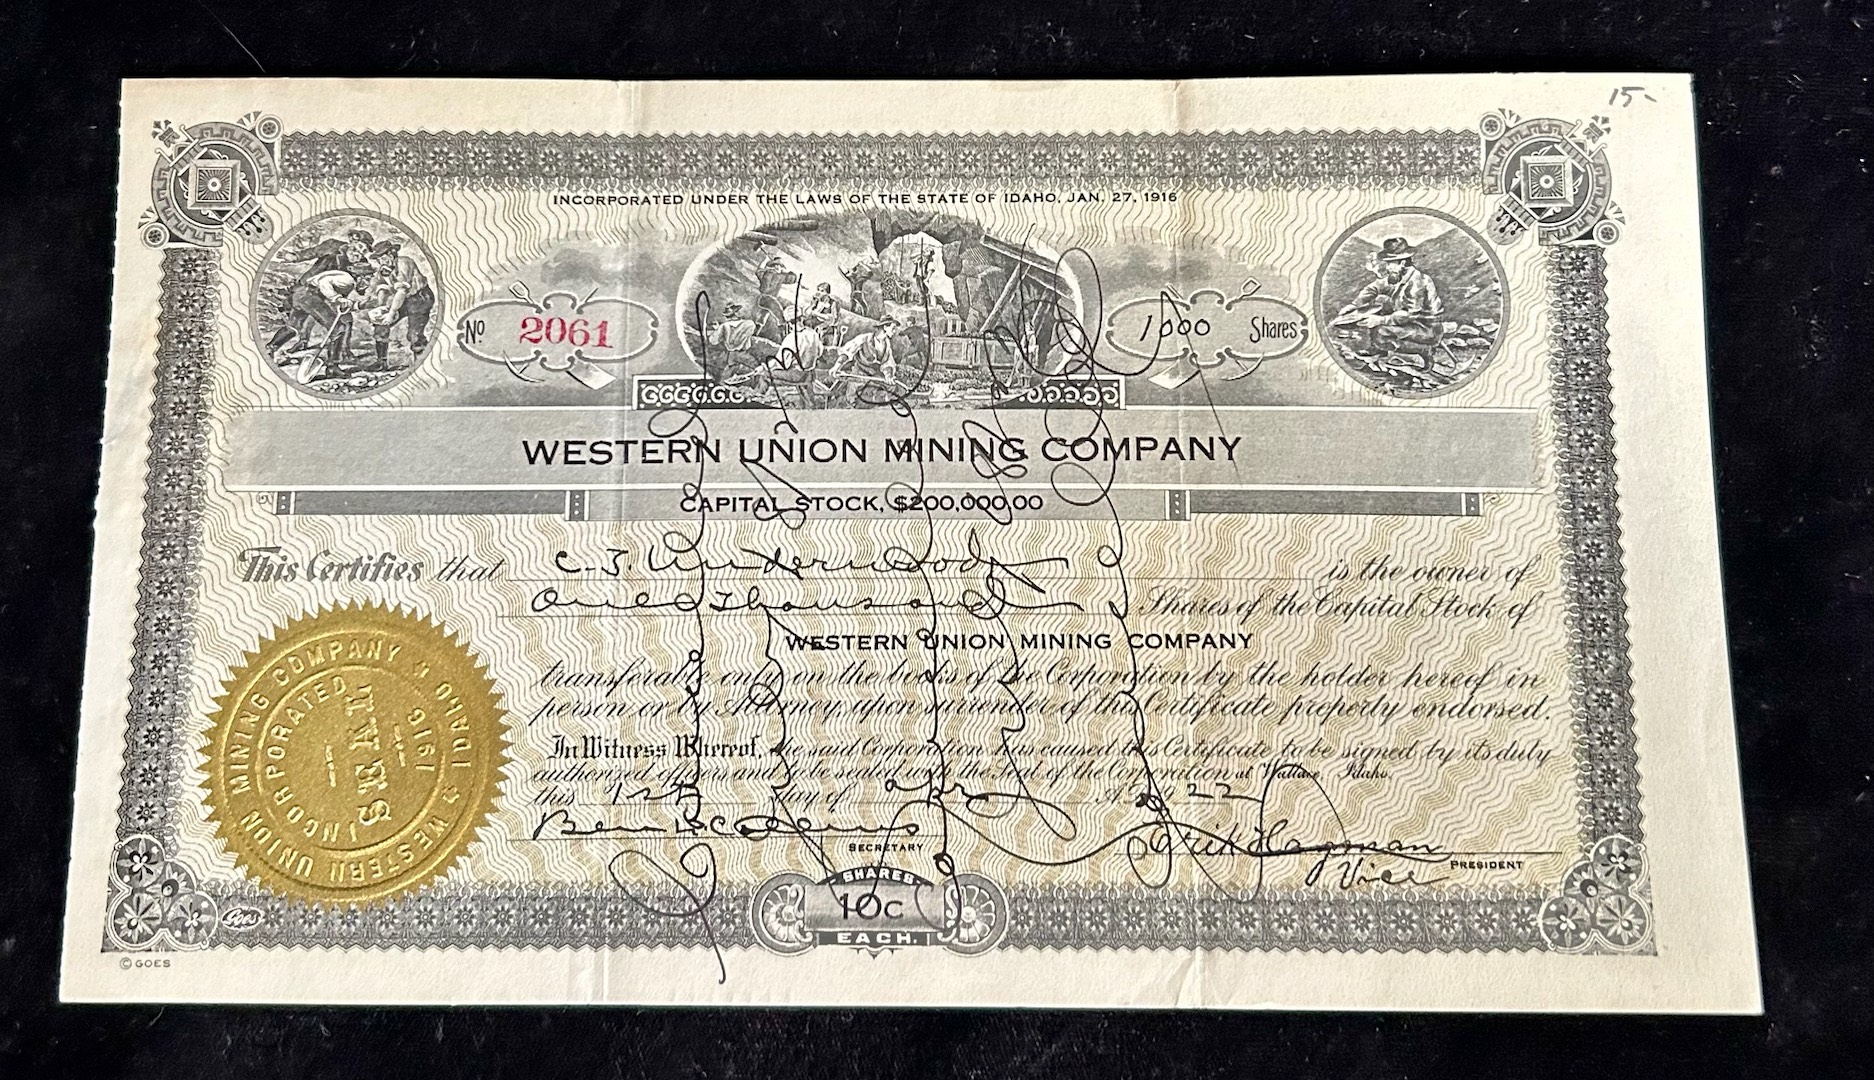 15-
INCORPORATED UNDER THE LAWS OF THE STATE OF IDAHO, JAN. 27, 1916
No 2061
1000 Shares
WESTERN UNION MINING COMPANY
CAPITAL STOCK, $200,000.00
This Certifies that C. J. Underwood is the owner of
One Thousand Shares of the Capital Stock of
WESTERN UNION MINING COMPANY
transferable only on the books of the Corporation by the holder hereof in
person or by Attorney, upon surrender of this Certificate properly endorsed.
In Witness Whereof, the said Corporation has caused this Certificate to be signed by its duly
authorized officers and to be sealed with the Seal of the Corporation at Wallace, Idaho.
this 12th day of Apr A.D. 1922
Ben
SECRETARY
Hagman
Vice PRESIDENT
WESTERN UNION MINING COMPANY
IDAHO
INCORPORATED
1916
SEAL
SHARES
10c
EACH.
Goes
© GOES